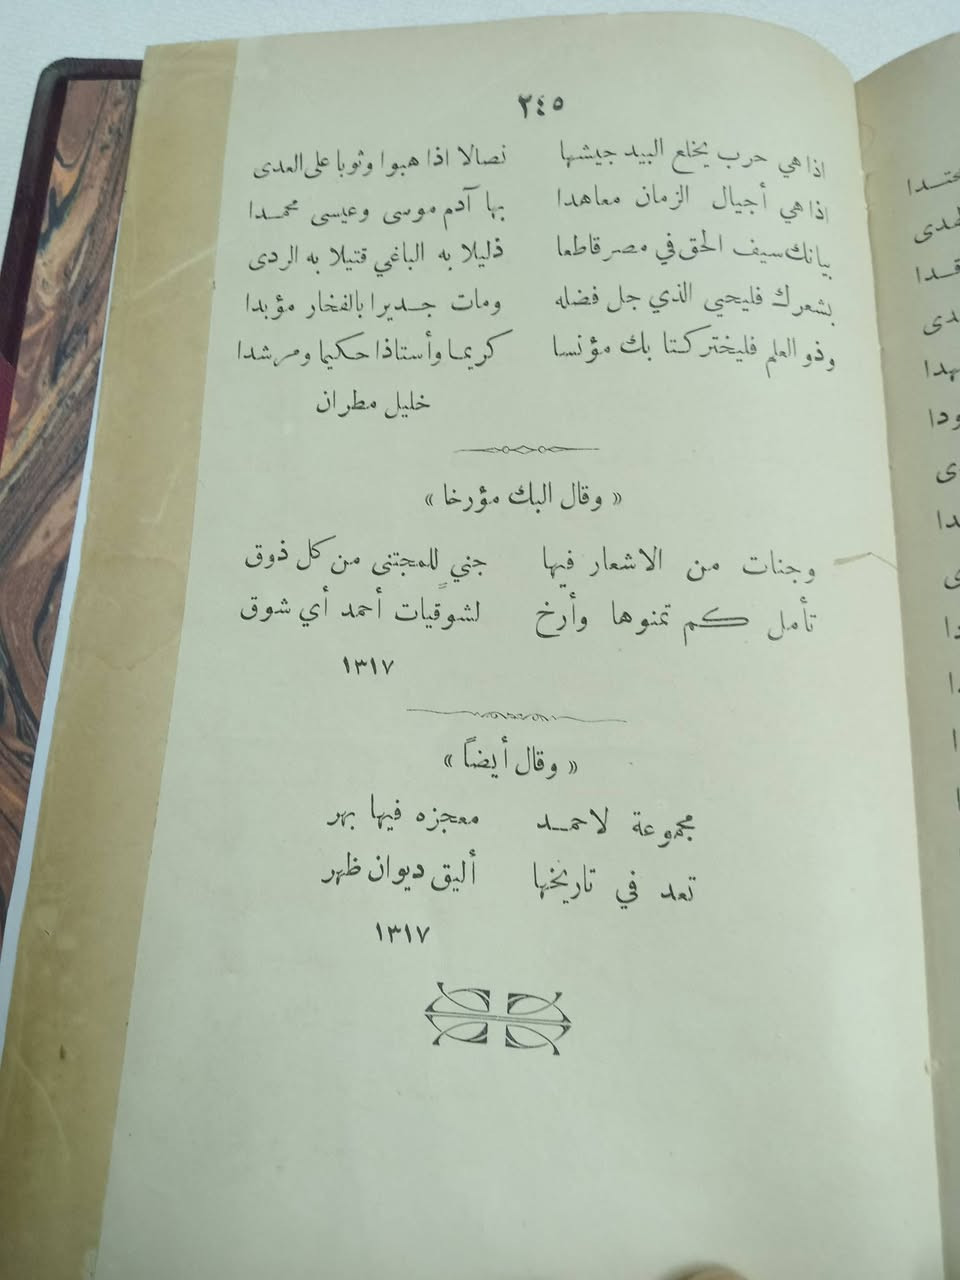 ٢٤٥
اذا هي حرب يخلع البيد جيشها نصالا اذا هبوا وثوبا على العدى
اذا هي أجيال الزمان معاهدا بها آدم موسى وعيسى محمدا
بيانك سيف الحق في مصر قاطعا ذليلا به الباغي قتيلا به الردى
بشعرك فليحيي الذي جل فضله ومات جديرا بالفخار مؤبدا
وذو العلم فليختر كستا بك مؤنسا كريما وأستاذا حكيما ومرشدا
خليل مطران
« وقال البك مؤرخا »
وجنات من الاشعار فيها جني للمجتنى من كل ذوق
تأمل كم تمنوها وأرخ لشوقيات أحمد أي شوق
١٣١٧
« وقال أيضاً »
مجموعة لاحمد معجزه فيها بهر
تعد في تاريخها أليق ديوان ظهر
١٣١٧